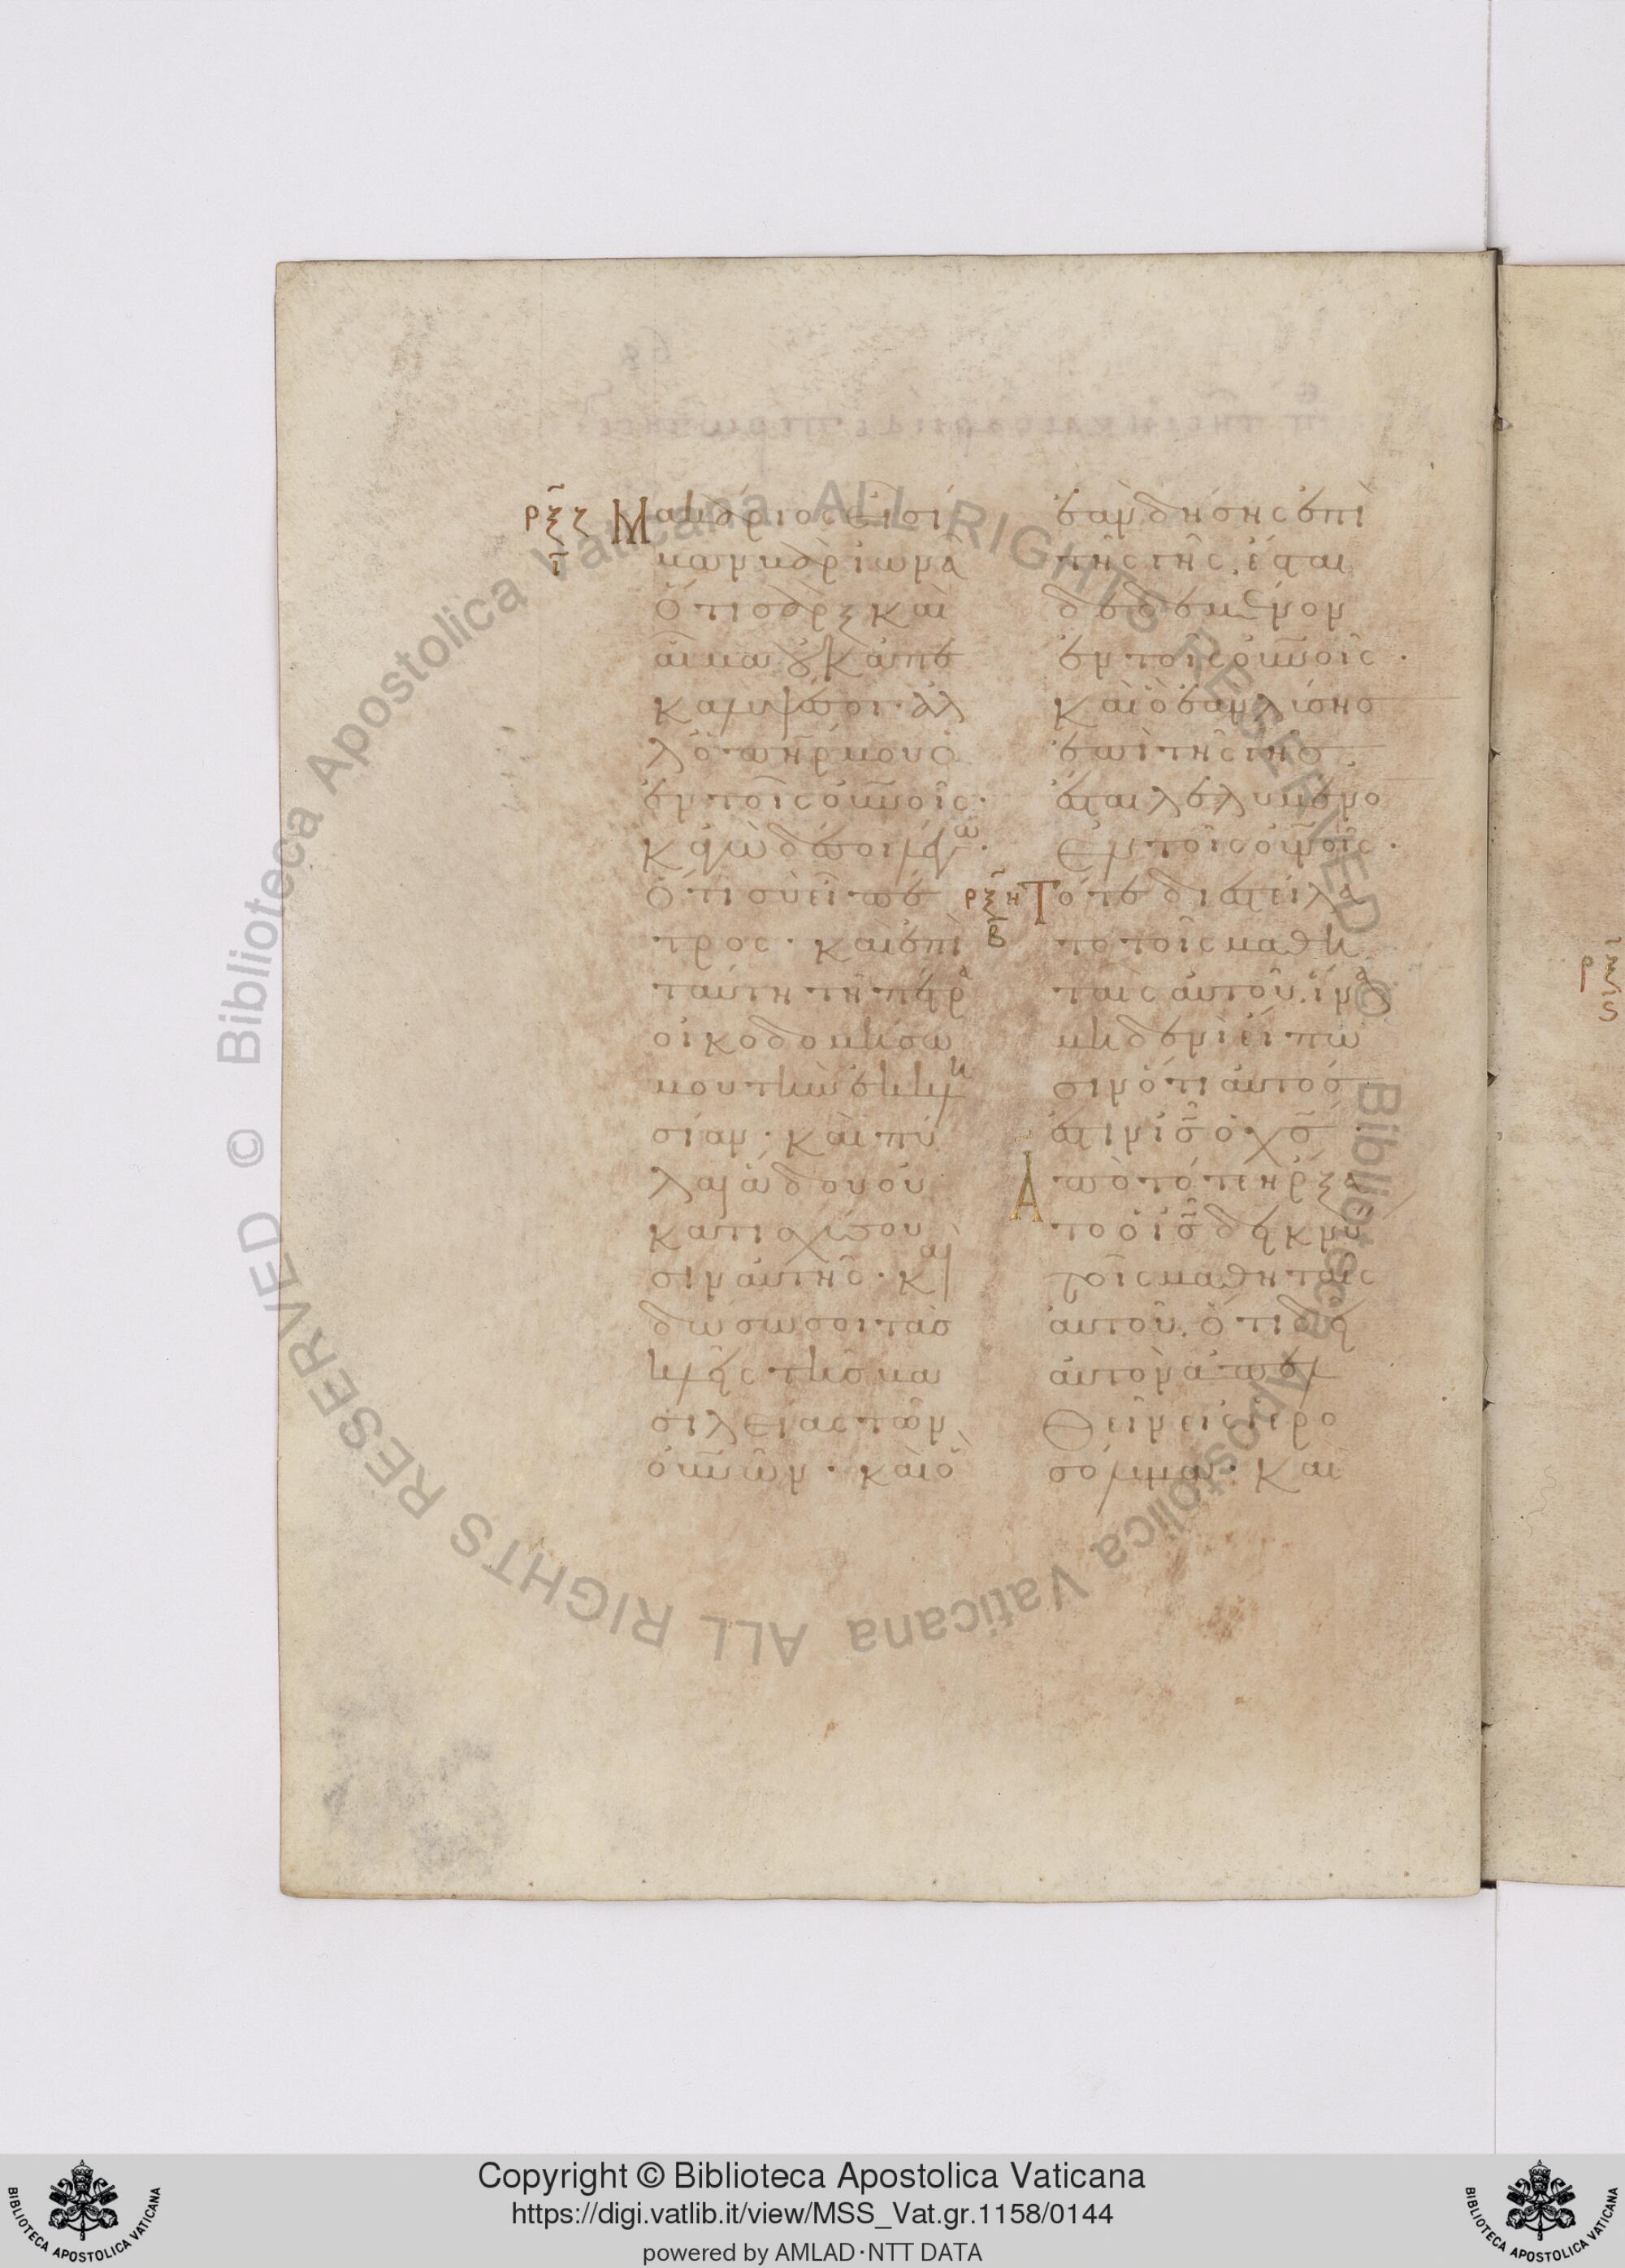 ρξζ Μακάριος εἶ σί
ι
μων βαριωνᾶ
ὅτι σὰρξ καὶ
αἷμα οὐκ ἀπε
κάλυψέ σοι· ἀλ
λ' ὁ πη̅ρ μου ὁ
ἐν τοῖς οὐ̅νοις·
κἀγὼ δέ σοι λέγω·
ὅτι σὺ εἶ πέ
τρος· καὶ ἐπὶ
ταύτη τῆ πέτρα
οἰκοδομήσω
μου τὴν ἐκκλη
σίαν· καὶ πύ
λαι ἅδου οὐ
κατισχύσου
σιν αὐτῆς· καὶ
δώσω σοι τὰς
κλεῖς τῆς βα
σιλείας τῶν
οὐ̅νῶν· καὶ ὃ
ἐὰν δήσης ἐπὶ
τῆς γῆς, ἔσται
δεδεμένον
ἐν τοῖς οὐ̅νοῖς·
καὶ ὃ ἐὰν λύσης
ἐπὶ τῆς γῆς
ἔσται λελυμένο
ἐν τοῖς οὐ̅νοῖς·
ρξη Τότε διεστείλα
β
το τοῖς μαθη
ταῖς αὐτοῦ, ἵνα
μηδενὶ εἴπω
σιν ὅτι αὐτός
ἐστιν ι̅ς ὁ χ̅ς·
Ἀπὸ τότε ἤρξα
το ὁ ι̅ς δεικνύ
τοῖς μαθηταῖς
αὐτοῦ, ὅτι δεῖ
αὐτὸν ἀπελ
θεῖν εἰς ἱερο
σόλυμα· καὶ
Copyright © Biblioteca Apostolica Vaticana
https://digi.vatlib.it/view/MSS_Vat.gr.1158/0144
powered by AMLAD·NTT DATA
BIBLIOTECA APOSTOLICA VATICANA
BIBLIOTECA APOSTOLICA VATICANA
© Biblioteca Apostolica Vaticana ALL RIGHTS RESERVED
© Biblioteca Apostolica Vaticana ALL RIGHTS RESERVED